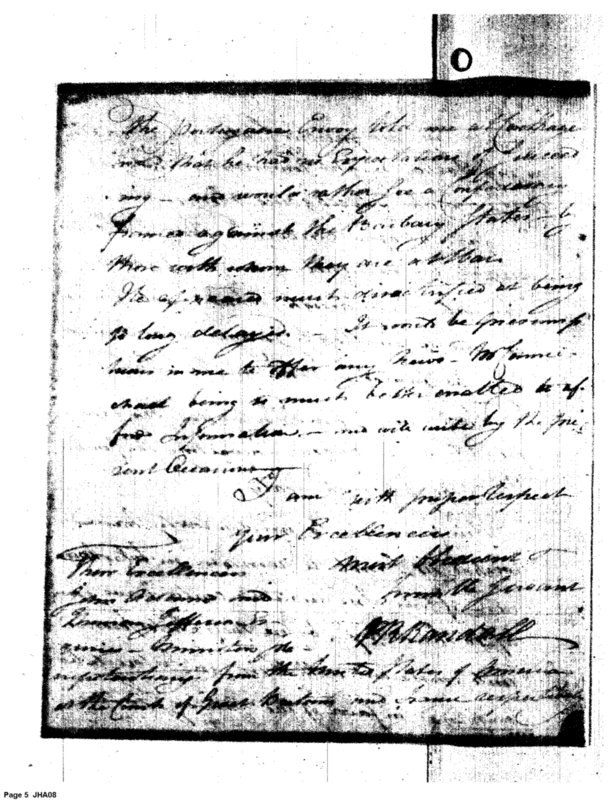 The Portuguese Envoy told me at Carthage
that he had no Expectations of Succeed
ing — and would rather see a Confederation
formed against the Barbary States — by
those with whom they are at War
He expressed much dissatisfied at being
so long delayed. — It would be presump
tuous in me to offer any News — Mr
being so much better enabled to af
ford Information — and will write by the pre
sent Occasion
I am with proper Respect
Your Excellencies
Most Obedient &
humble Servant
P R Randall
Their Excellencies
John Adams and
Thomas Jefferson Es
quires — Ministers ple
nipotentiary from the United States of America
at the Courts of Great Britain and France respectively
Page 5 JHA08